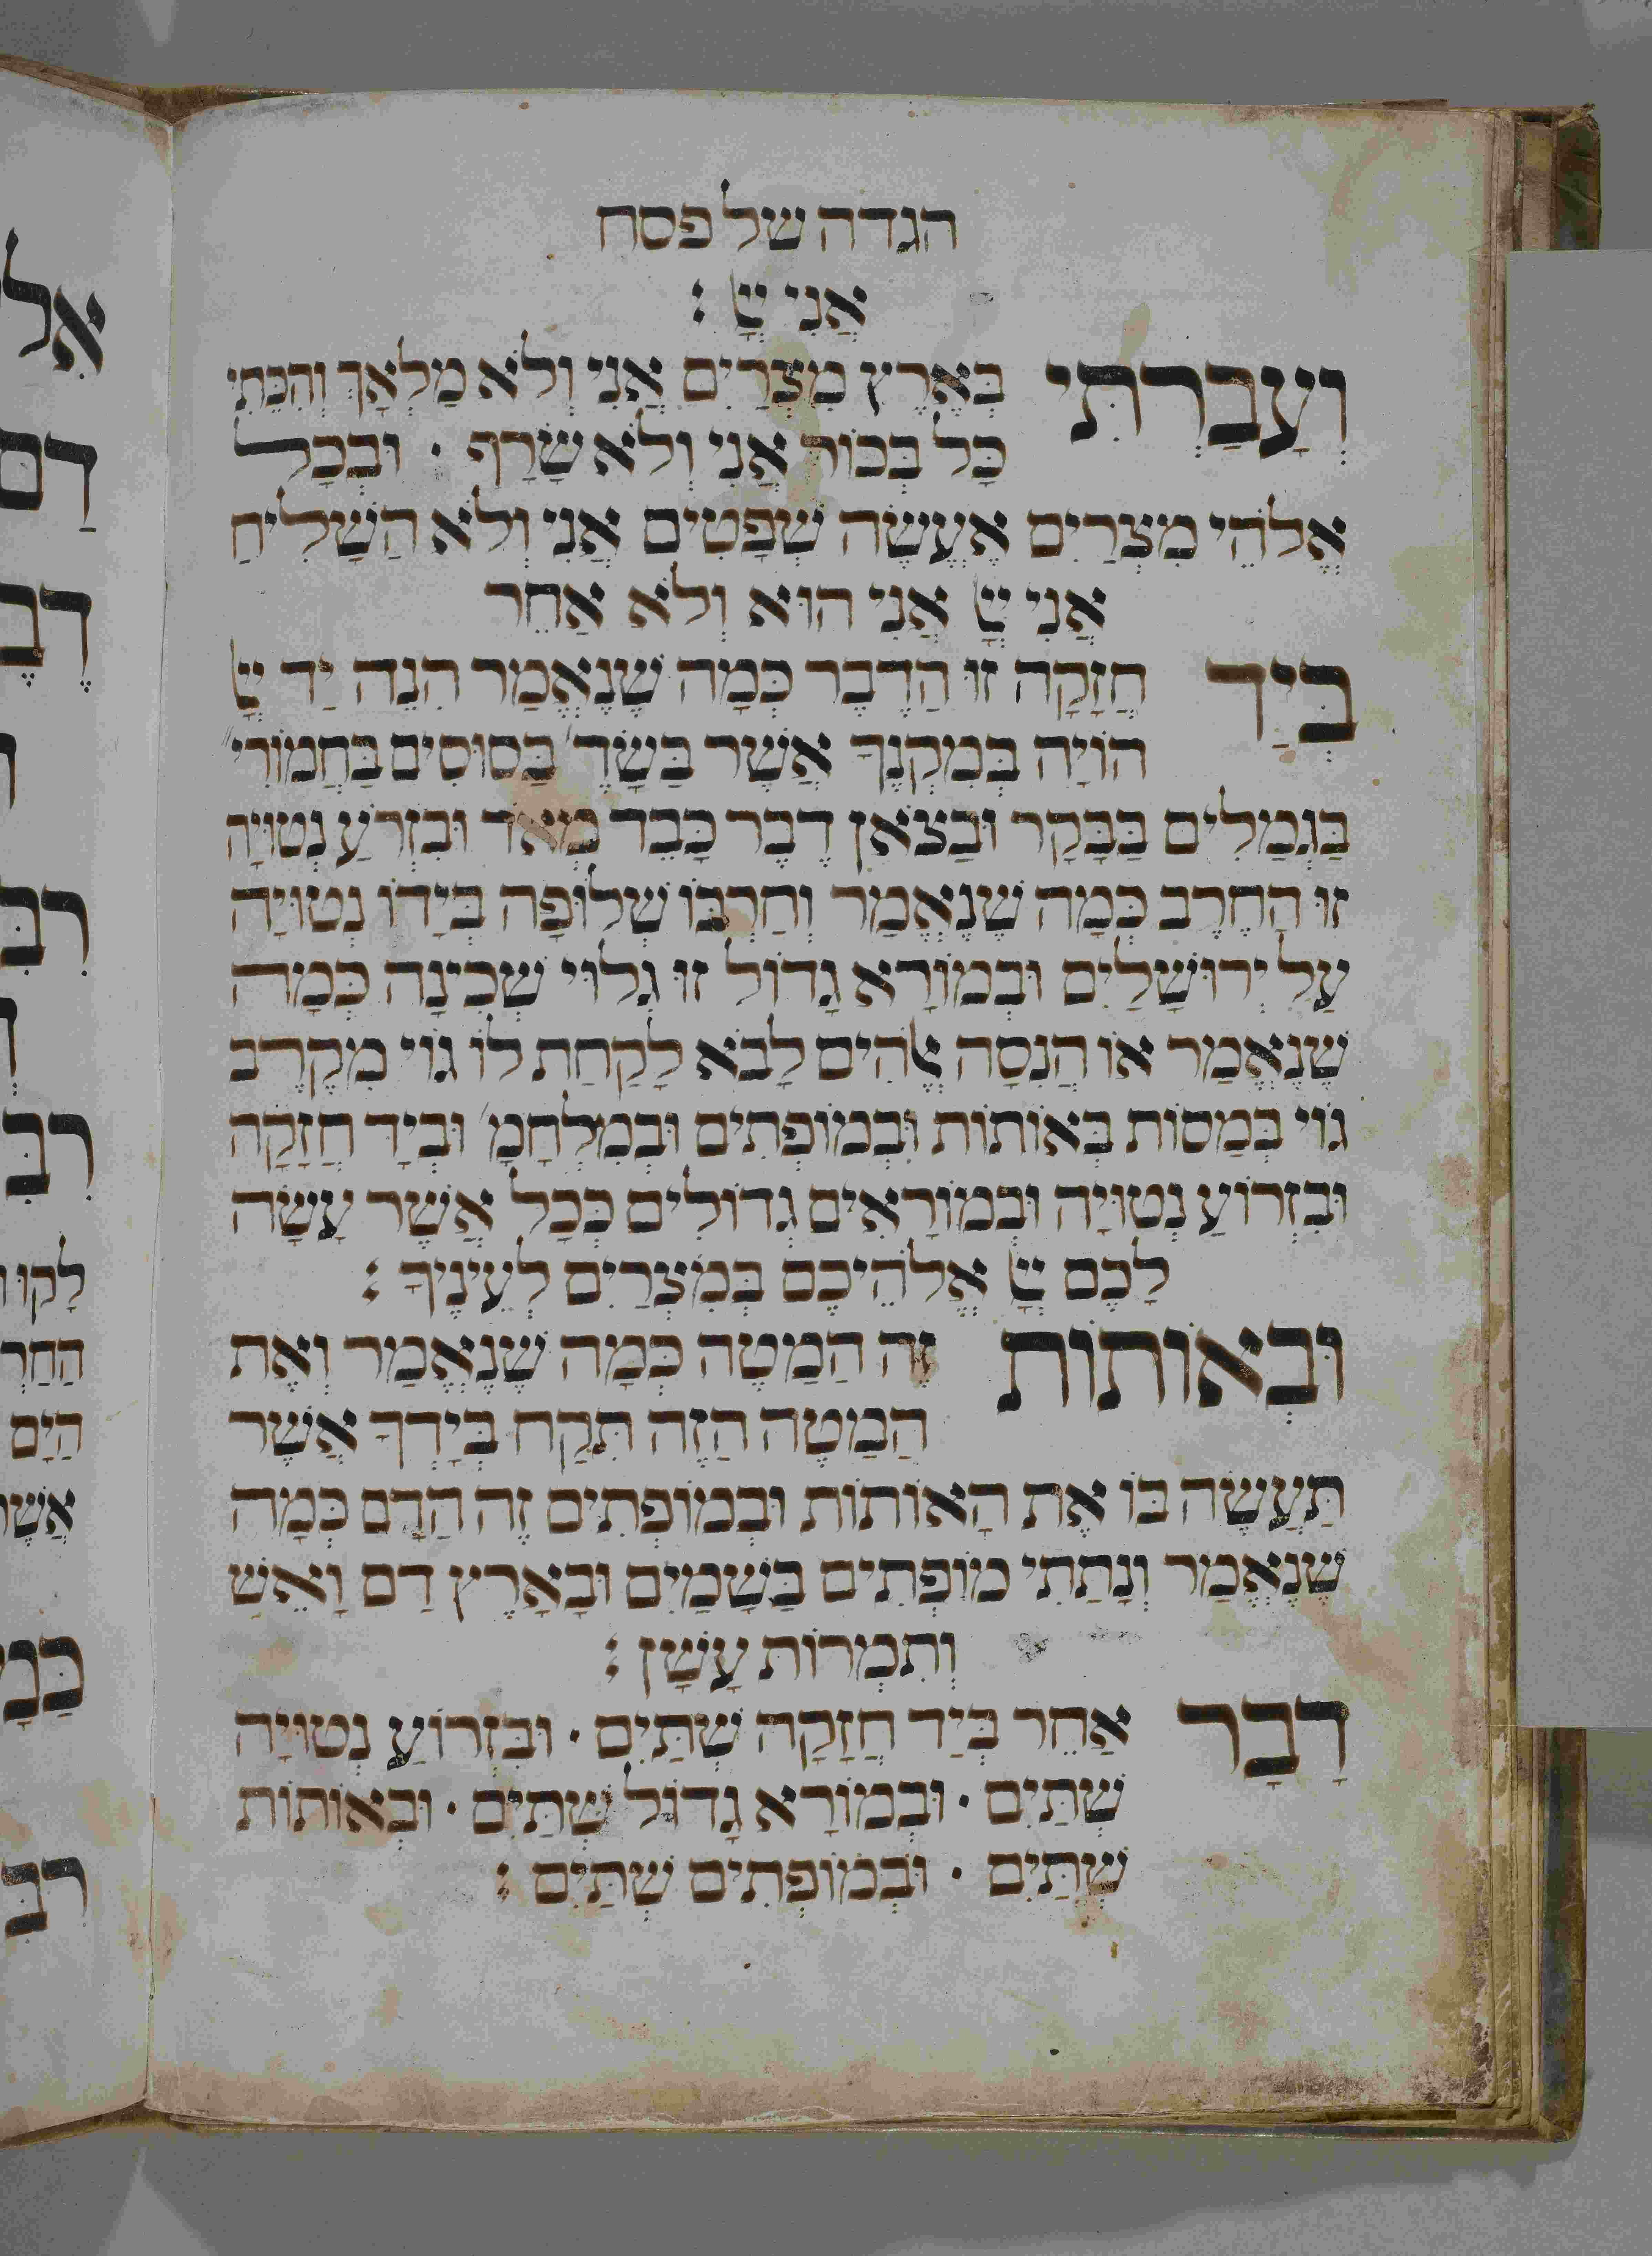 הגדה של פסח
אֲנִי יְיָ :
וְעָבַרְתִּי בְּאֶרֶץ מִצְרַיִם אֲנִי וְלֹא מַלְאָךְ וְהִכֵּתִי
כָּל בְּכוֹר אֲנִי וְלֹא שָׂרָף · וּבְכָל
אֱלֹהֵי מִצְרַיִם אֶעֱשֶׂה שְׁפָטִים אֲנִי וְלֹא הַשָּׁלִיחַ
אֲנִי יְיָ אֲנִי הוּא וְלֹא אַחֵר
בְּיַד חֲזָקָה זוּ הַדֶּבֶר כְּמָה שֶׁנֶּאֱמַר הִנֵּה יַד יְיָ
הוֹיָה בְּמִקְנְךָ אֲשֶׁר בַּשָּׂדֶ' בַּסּוּסִים בַּחֲמוֹרִי"
בַּגְּמַלִּים בַּבָּקָר וּבַצֹּאן דֶּבֶר כָּבֵד מְאֹד וּבִזְרֹעַ נְטוּיָה
זוּ הַחֶרֶב כְּמָה שֶׁנֶּאֱמַר וְחַרְבּוֹ שְׁלוּפָה בְּיָדוֹ נְטוּיָה
עַל יְרוּשָׁלַיִם וּבְמוֹרָא גָדוֹל זוּ גִלּוּי שְׁכִינָה כְּמָה
שֶׁנֶּאֱמַר אוֹ הֲנִסָּה אֱלֹהִים לָבֹא לָקַחַת לוֹ גוֹי מִקֶּרֶב
גּוֹי בְּמַסּוֹת בְּאוֹתוֹת וּבְמוֹפְתִים וּבְמִלְחָמָ' וּבְיָד חֲזָקָה
וּבִזְרוֹעַ נְטוּיָה וּבְמוֹרָאִים גְּדוֹלִים כְּכָל אֲשֶׁר עָשָׂה
לָכֶם יְיָ אֱלֹהֵיכֶם בְּמִצְרַיִם לְעֵינֶיךָ :
וּבְאוֹתוֹת זֶה הַמַּטֶּה כְּמָה שֶׁנֶּאֱמַר וְאֶת
הַמַּטֶּה הַזֶּה תִּקַּח בְּיָדְךָ אֲשֶׁר
תַּעֲשֶׂה בּוֹ אֶת הָאוֹתוֹת וּבְמוֹפְתִים זֶה הַדָּם כְּמָה
שֶׁנֶּאֱמַר וְנָתַתִּי מוֹפְתִים בַּשָּׁמַיִם וּבָאָרֶץ דָּם וָאֵשׁ
וְתִמְרוֹת עָשָׁן :
דָּבָר אַחֵר בְּיַד חֲזָקָה שְׁתַּיִם · וּבִזְרוֹעַ נְטוּיָה
שְׁתַּיִם · וּבְמוֹרָא גָדוֹל שְׁתַּיִם · וּבְאוֹתוֹת
שְׁתַּיִם · וּבְמוֹפְתִים שְׁתַּיִם :